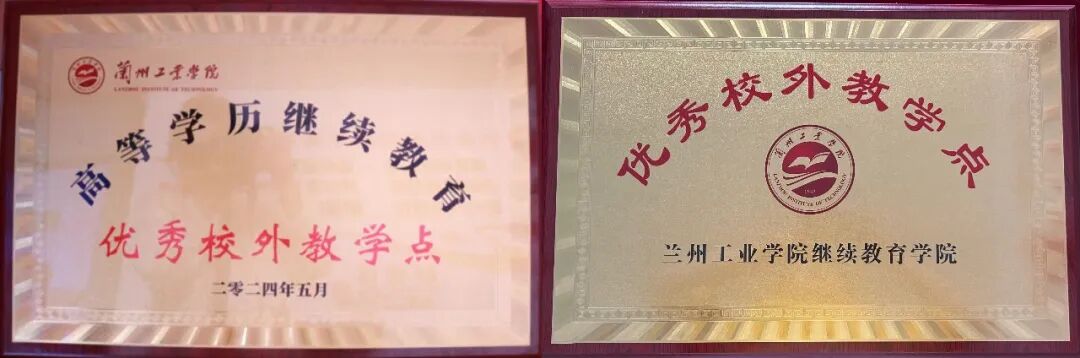 蘭州工業學院
LANZHOU INSTITUTE OF TECHNOLOGY
高等学历继续教育
优秀校外教学点
二零二四年五月
优秀校外教学点
蘭州工業學院
LANZHOU INSTITUTE OF TECHNOLOGY
兰州工业学院继续教育学院